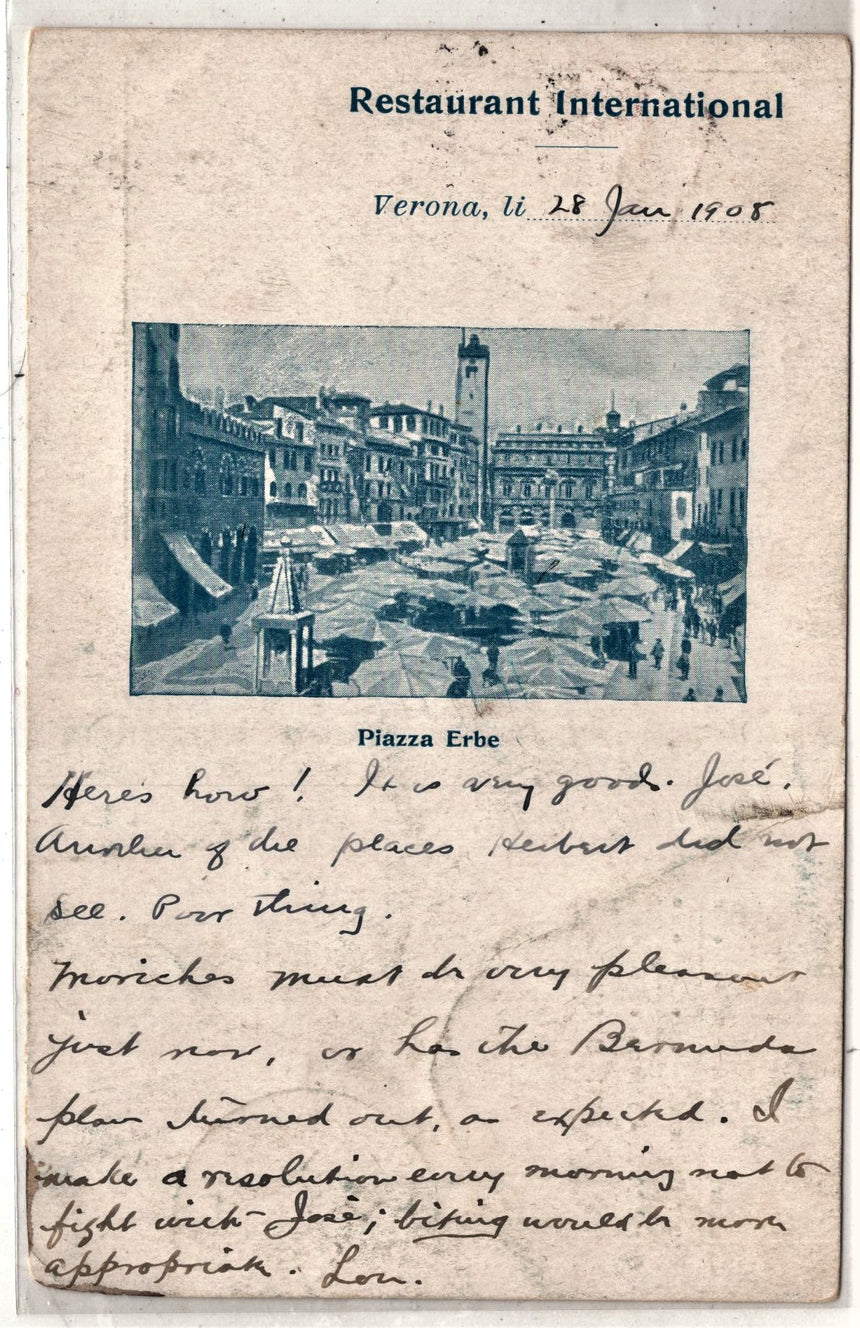 Restaurant International
Verona, li 28 Jan 1908
Piazza Erbe
Here's how! It is very good. José.
Another of the places Herbert did not
see. Poor thing.
Moriches must be very pleasant
just now, or has the Bermuda
plan turned out, as expected. I
make a resolution every morning not to
fight with José; biting would be more
appropriate. Lou.